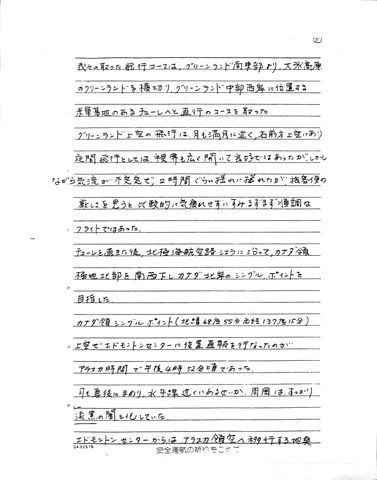 (5)
我々の取った飛行コースは、グリーンランド南東部より、大氷高原
のグリーンランドを横切り、グリーンランド中部西岸に位置する
米軍基地のあるチューレへと直行のコースを取った。
グリーンランド上空の飛行は、月も満月に近く、右前方上空にあり
夜間飛行としては視界も広く開いて良好ではあったが、しかし
ながら気流が不安定で、2時間ぐらい揺れに揺れたが 旅客便の
厳しさを思うと比較的に気疲れせずにすみまずまず順調な
フライトではあった。
チューレを過ぎた後、北極海航空路 に沿って、カナダ領
極地北部を南西下しカナダ北岸のシングルポイントを
目指した。
カナダ領シングルポイント(北緯68度55分西経137度15分)
上空でエドモントンセンターに位置通報を行なったのが
アラスカ時間で午後4時52分頃であった。
月も最後にまわり、水平線近くにあるせいか、周囲は、すっかり
漆黒の闇と化していた。
エドモントンセンターからは アラスカ領空へ移行する
GA-02576
安全運航の祈りをこめて